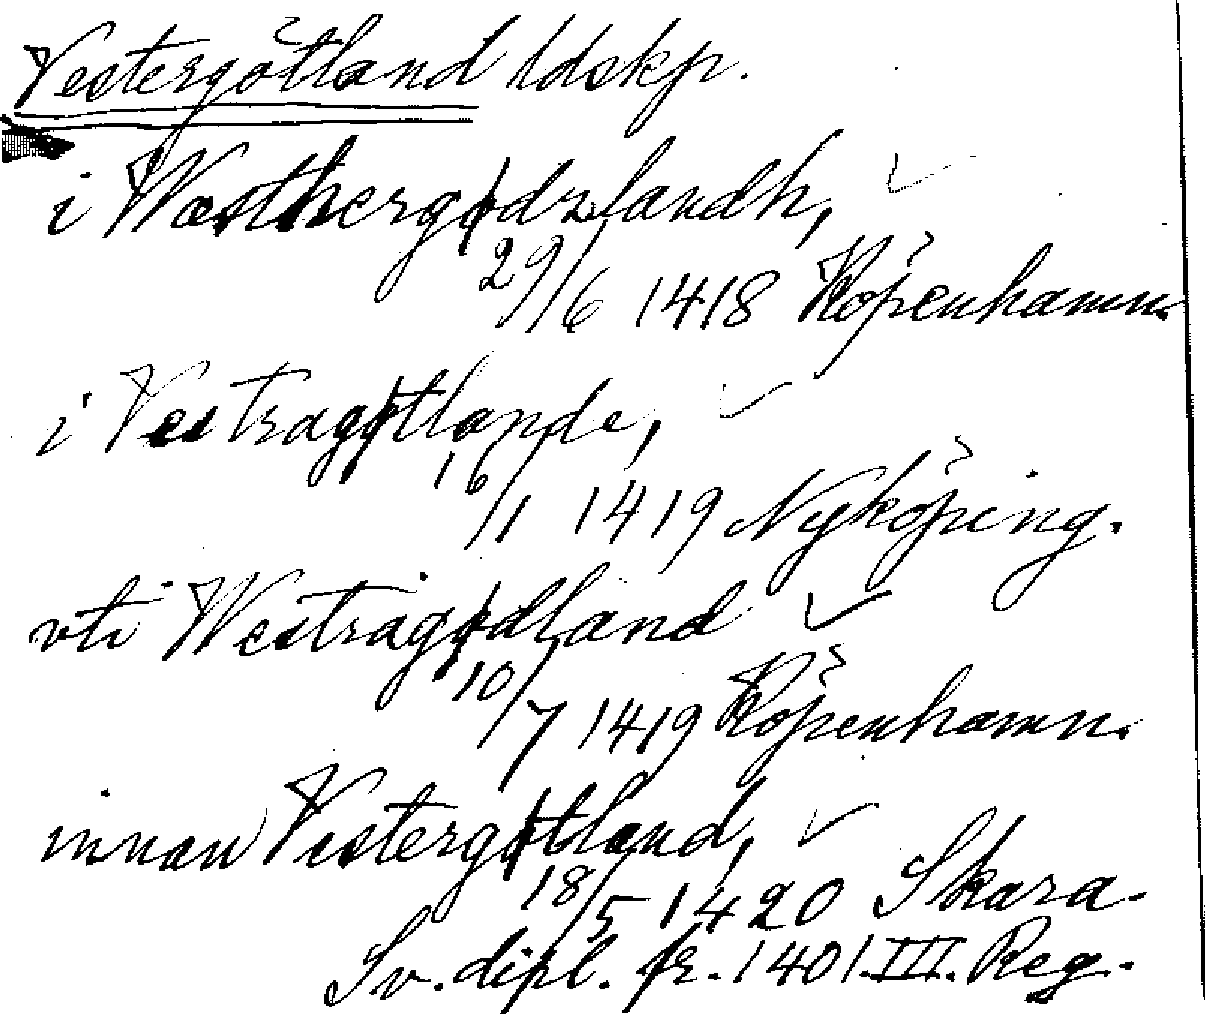 Vestergötland ldskp.
i Wæsthergødzlandh,
29/6 1418 Köpenhamn.
i Vestragøtlande,
16/1 1419 Nyköping.
vti Westragødland
10/7 1419 Köpenhamn.
innan Vestergøtland,
18/5 1420 Skara.
Sv. dipl. fr. 1401. III. Reg.